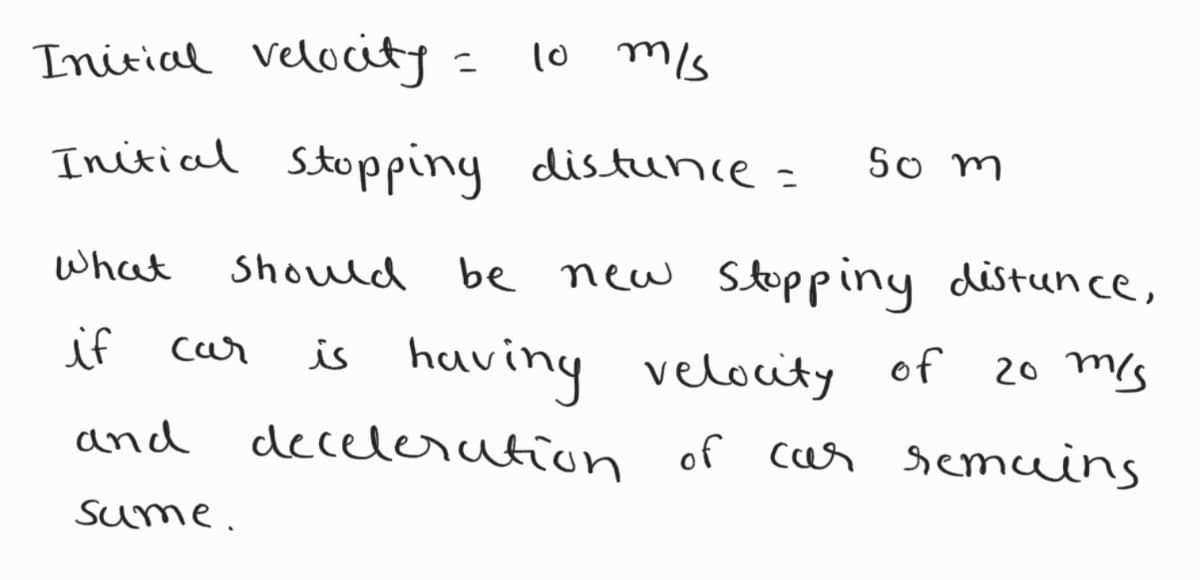 Initial velocity = 10 m/s
Initial stopping distance = 50 m
What should be new stopping distance,
if car is having velocity of 20 m/s
and deceleration of car remains
same.